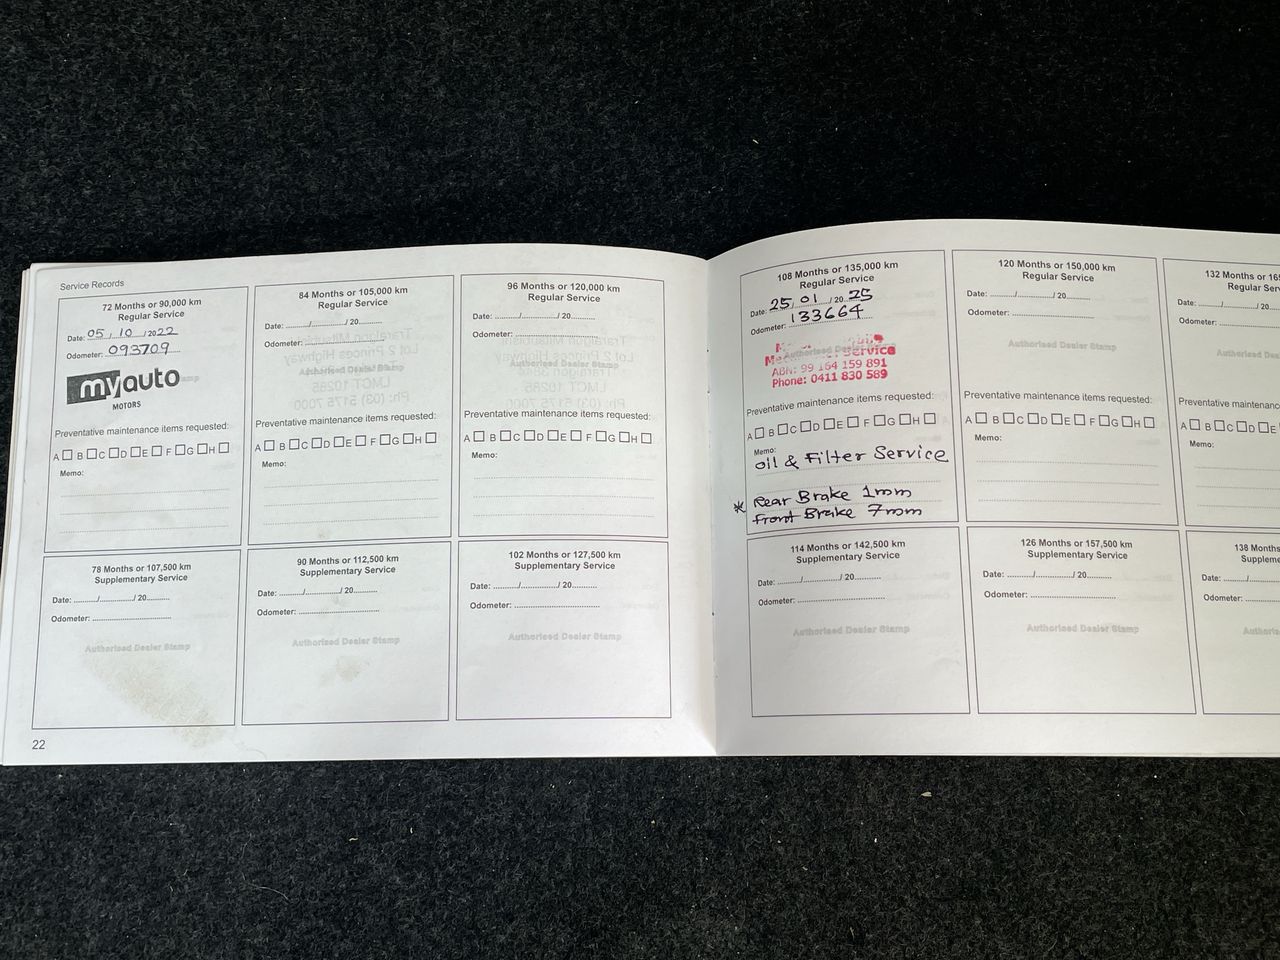 Service Records
72 Months or 90,000 km
Regular Service
Date: 05 / 10 / 2022
Odometer: 093709
myauto
MOTORS
Preventative maintenance items requested:
A B C D E F G H
Memo:
84 Months or 105,000 km
Regular Service
Date: ......../............/ 20..........
Odometer: ......................
Authorised Dealer Stamp
Preventative maintenance items requested:
A B C D E F G H
Memo:
96 Months or 120,000 km
Regular Service
Date: ......../............/ 20..........
Odometer: ......................
Authorised Dealer Stamp
Preventative maintenance items requested:
A B C D E F G H
Memo:
78 Months or 107,500 km
Supplementary Service
Date: ......../............/ 20..........
Odometer: ......................
Authorised Dealer Stamp
90 Months or 112,500 km
Supplementary Service
Date: ......../............/ 20..........
Odometer: ......................
Authorised Dealer Stamp
102 Months or 127,500 km
Supplementary Service
Date: ......../............/ 20..........
Odometer: ......................
Authorised Dealer Stamp
22
108 Months or 135,000 km
Regular Service
Date: 25 / 01 / 20 25
Odometer: 133664
Authorised Dealer Stamp
Service
ABN: 99 164 159 891
Phone: 0411 830 589
Preventative maintenance items requested:
A B C D E F G H
Memo:
oil & Filter Service
* Rear Brake 1mm
Front Brake 7mm
120 Months or 150,000 km
Regular Service
Date: ......../............/ 20..........
Odometer: ......................
Authorised Dealer Stamp
Preventative maintenance items requested:
A B C D E F G H
Memo:
132 Months or
Regular
Date:
Odometer:
Authorised
Preventative
A B C D E
Memo:
114 Months or 142,500 km
Supplementary Service
Date: ......../............/ 20..........
Odometer: ......................
Authorised Dealer Stamp
126 Months or 157,500 km
Supplementary Service
Date: ......../............/ 20..........
Odometer: ......................
Authorised Dealer Stamp
138 Months
Date:
Odometer: